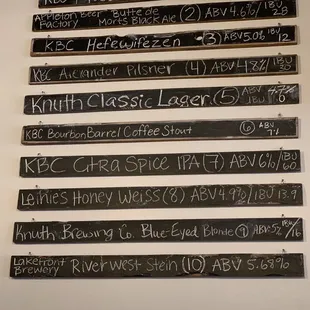 Appleton Beer Factory Butte de Morts Black Ale (2) ABV 4.6% / IBU 28
KBC Hefeweifezen (3) ABV 5.0% IBU 12
KBC Alexander Pilsner (4) ABV 4.8% IBU
Knuth Classic Lager (5) ABV 4.7% IBU 6
KBC Bourbon Barrel Coffee Stout (6) ABV
KBC Citra Spice IPA (7) ABV 6% IBU 60
Leinies Honey Weiss (8) ABV 4.9% / IBU 13.9
Knuth Brewing Co. Blue-Eyed Blonde (9) ABV 5.2 IBU 16
Lakefront Brewery RiverWest Stein (10) ABV 5.68%